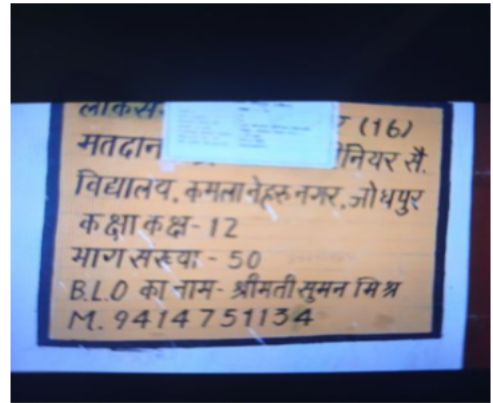 लोकस
र (16)
मतदान नियर सै.
विद्यालय, कमला नेहरू नगर, जोधपुर
कक्षा कक्ष - 12
भाग संख्या - 50
B.L.O का नाम - श्रीमती सुमन मिश्र
M. 9414751134